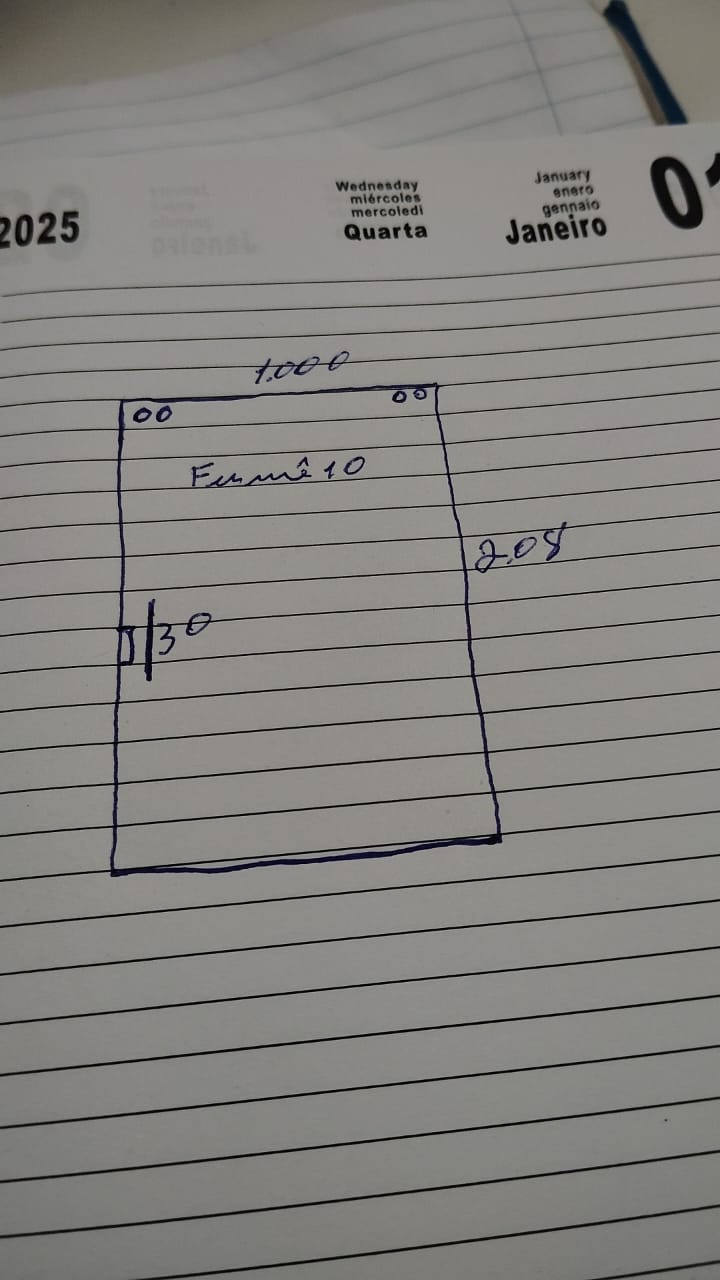 2025
Wednesday
miércoles
mercoledi
Quarta
January
enero
gennaio
Janeiro
01
1.000
Fumê 10
2.08
30